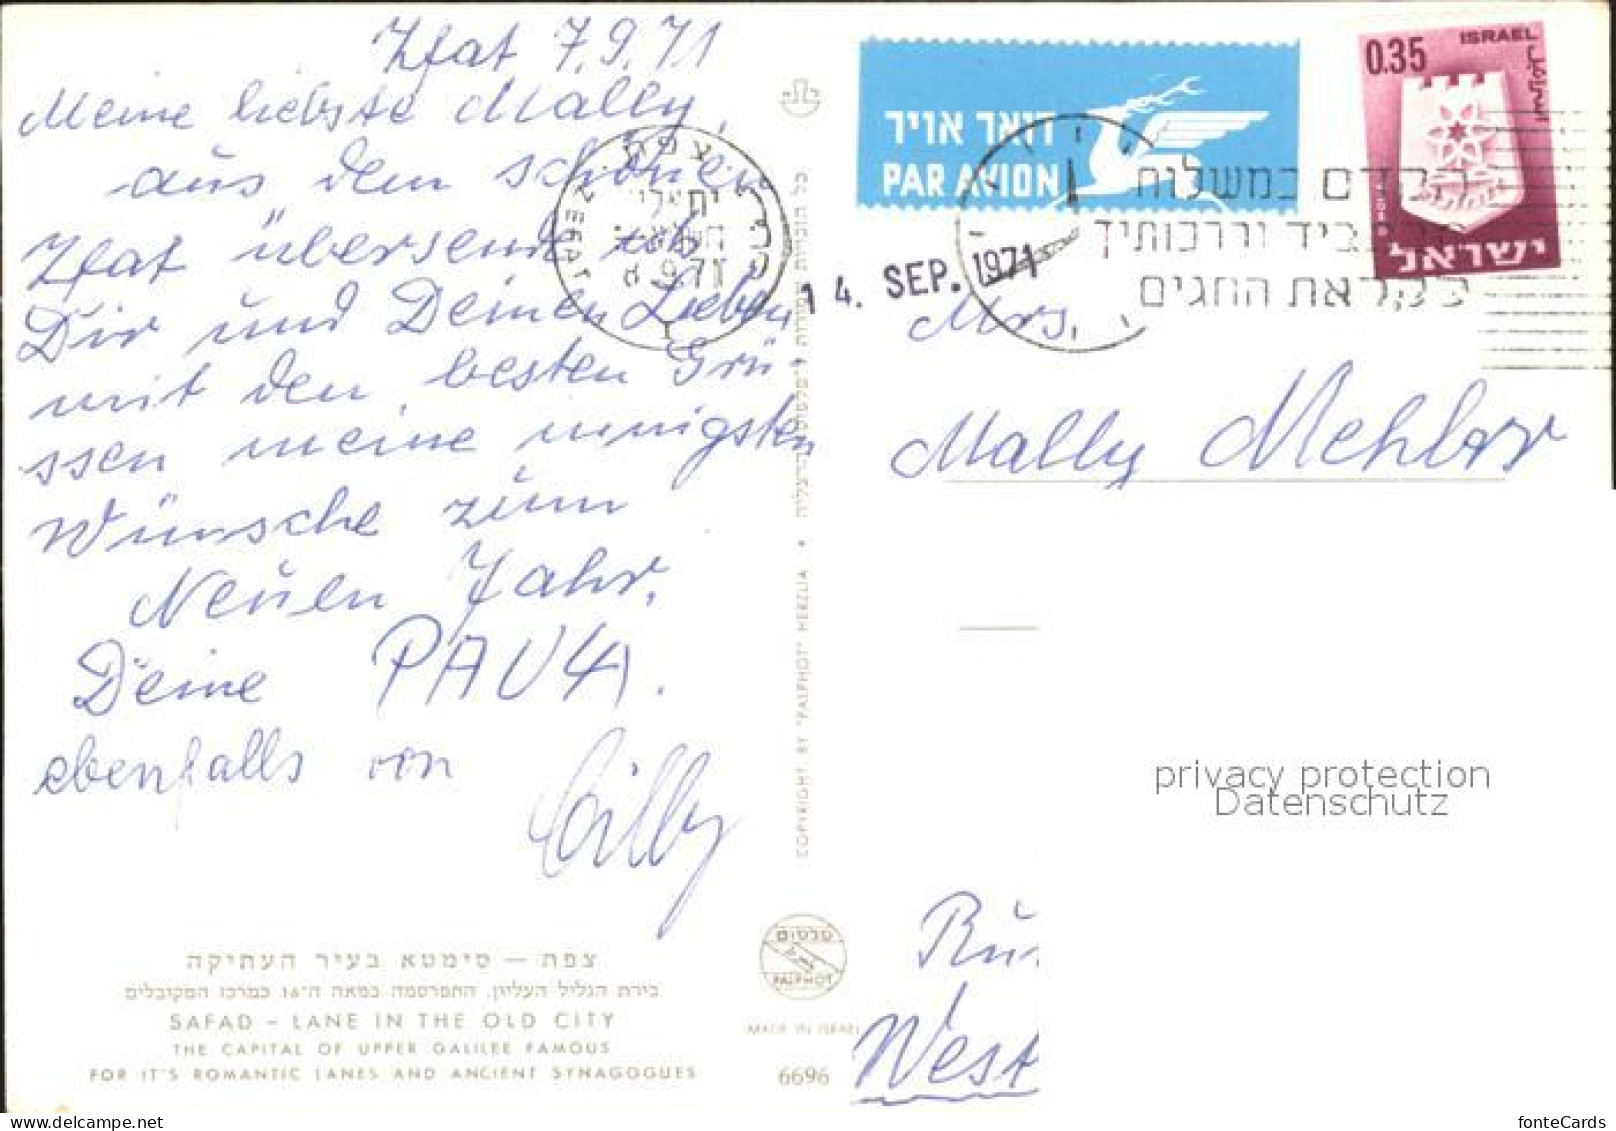 Zfat 7.9.71
Meine liebste Mally,
aus dem schönen
Zfat übersend ich
Dir und Deinen Lieben
mit den besten Grü
ssen meine innigsten
Wünsche zum
Neuen Jahr.
Deine PAULA.
ebenfalls von
Cilly
צפת – סימטא בעיר העתיקה
בירת הגליל העליון, התפרסמה במאה ה־16 כמרכז המקובלים
SAFAD – LANE IN THE OLD CITY
THE CAPITAL OF UPPER GALILEE FAMOUS
FOR IT'S ROMANTIC LANES AND ANCIENT SYNAGOGUES
COPYRIGHT BY "PALPHOT" HERZLIA
פלפוט
PALPHOT
MADE IN ISRAEL
6696
דואר אויר
PAR AVION
0.35
ISRAEL
ישראל
8.9.71
14. SEP. 1971
הקדם במשלוח
וברכותיך
לקראת החגים
Mrs.
Mally Mehler
West
privacy protection
Datenschutz
www.delcampe.net
fonteCards